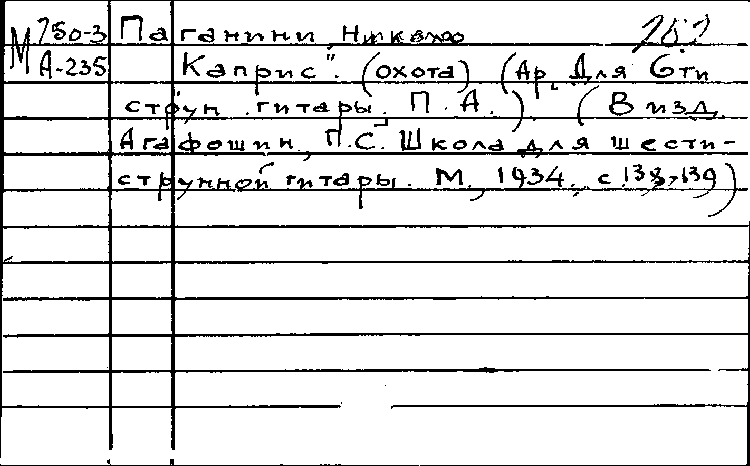 М 750-3 Паганини, Никколо 282
А-235 Каприс". (охота) (Ар. Для 6ти
струн. гитары. П. А.). (В изд.
Агафошин, П.С. Школа для шести-
струнной гитары. М., 1934, с.138-139)